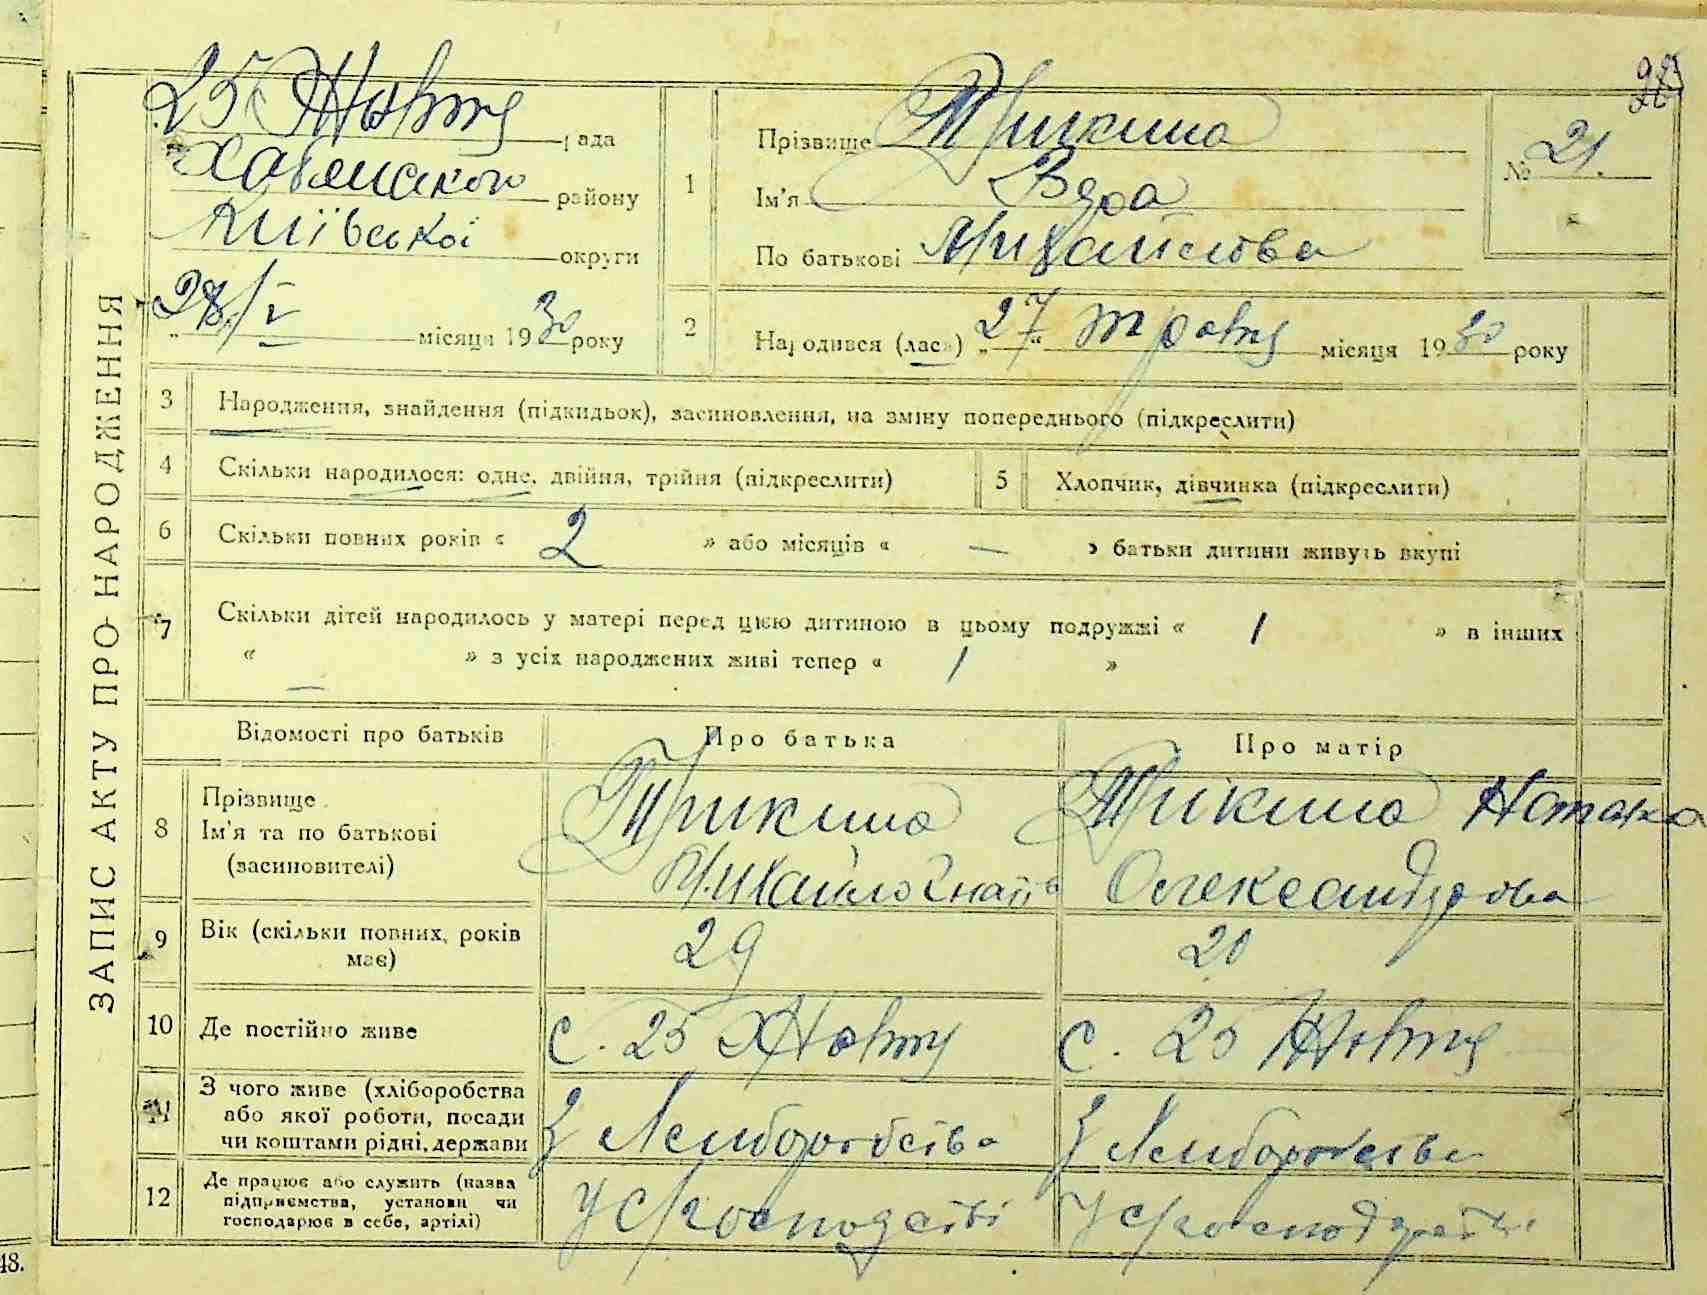 28
25 Жовтня рада
Хабенського району
Київської округи
„28/V місяця 1930 року
ЗАПИС АКТУ ПРО НАРОДЖЕННЯ
1
Прізвище Трикиша
Ім'я Вера
По батькові Михайлова
№ 21.
2
Народився (лась) „27" травня місяця 1930 року
3 Народження, знайдення (підкидьок), засиновлення, на зміну попереднього (підкреслити)
4 Скільки народилося: одне, двійня, трійня (підкреслити)
5 Хлопчик, дівчинка (підкреслити)
6 Скільки повних років « 2 » або місяців « — » батьки дитини живуть вкупі
7 Скільки дітей народилось у матері перед цією дитиною в цьому подружжі « 1 » в інших
« — » з усіх народжених живі тепер « 1 »
Відомості про батьків
Про батька
Про матір
8
Прізвище
Ім'я та по батькові
(засиновителі)
Трикиша
Михайло Гнатів
Трикиша Наталка
Олександрова
9 Вік (скільки повних років
має)
29
20
10 Де постійно живе
с. 25 Жовтня
с. 25 Жовтня
11
З чого живе (хліборобства
або якої роботи, посади
чи коштами рідні, держави
З хліборобства
З хліборобства
12
Де працює або служить (назва
підприємства, установи чи
господарює в себе, артілі)
У с/господстві
У с/господарстві
48.